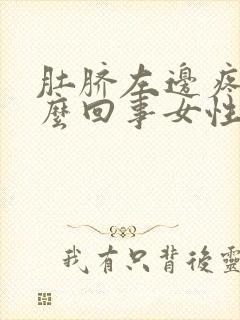 肚脐左邊疼
麼回事女性
我有只背後靈